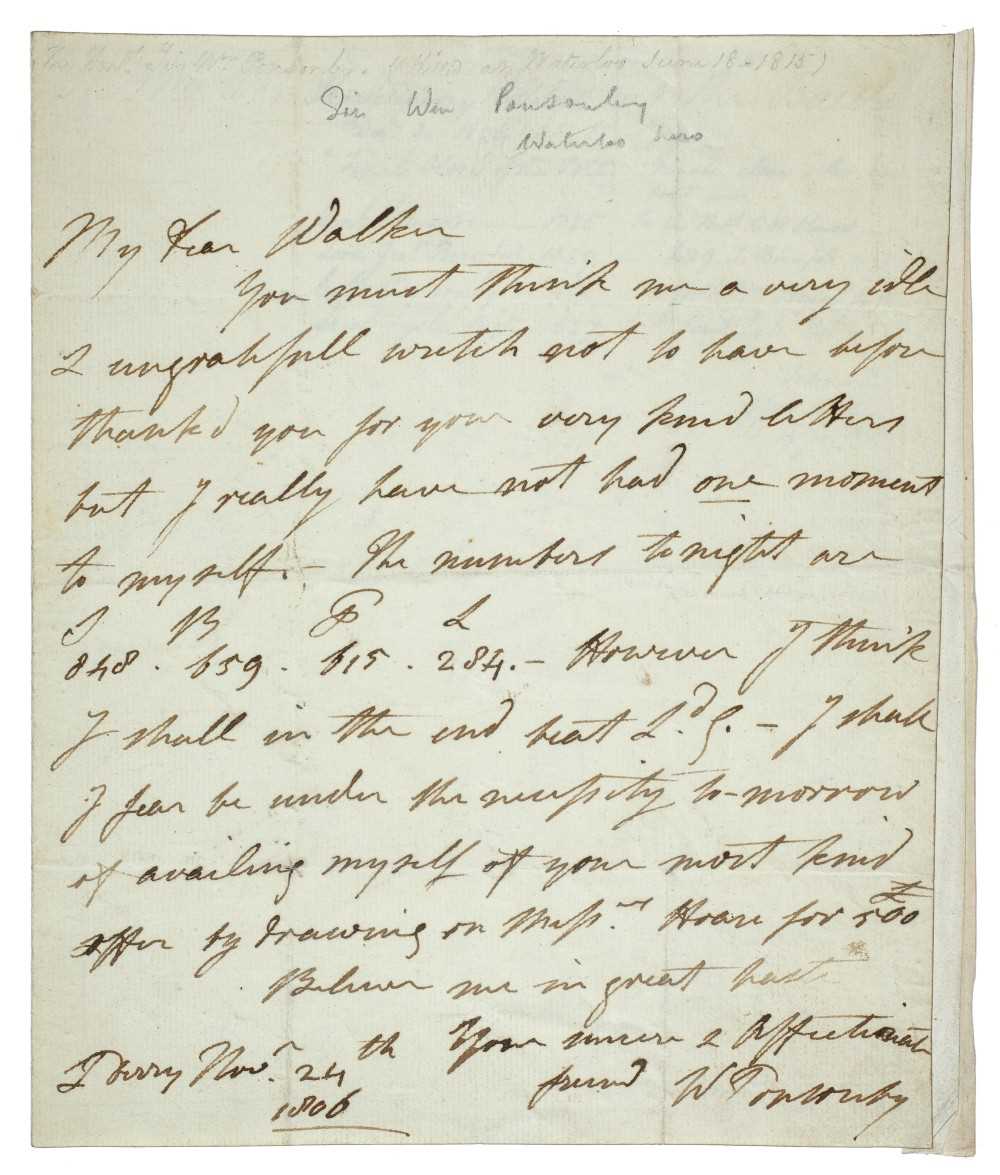 Sir Wm Ponsonby. (Killed at Waterloo June 18-1815)
Sir Wm Ponsonby
Waterloo hero
My dear Walker
You must think me a very idle
& ungratefull wretch not to have before
thank'd you for your very kind letters
but I really have not had one moment
to myself. – The numbers tonight are
S B P L
848 . 659 . 615 . 284. – However I think
I shall in the end beat Ld. G. – I shall
I fear be under the necessity to-morrow
of availing myself of your most kind
offer by drawing on Messrs. Hoare for £500
Believe me in great haste
Your sincere & Affectionate
friend W Ponsonby
L Derry Novr. 24th
1806